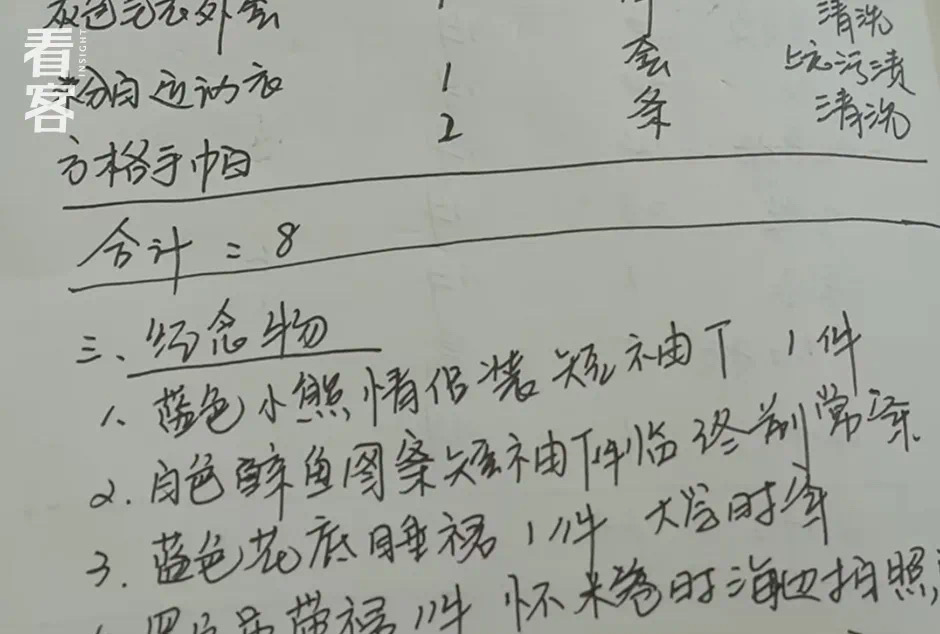 灰色毛衣外套 1 件 清洗
看客
INSIGHT
粉白运动衣 1 套 上衣污渍
方格手帕 2 条 清洗
合计：8
三、纪念物
1、蓝色小熊情侣装短袖T 1件
2．白色醉鱼图案短袖T1件临终前常穿
3．蓝色花底睡裙1件 大学时穿
吊带裙1件 怀米卷时海边拍照